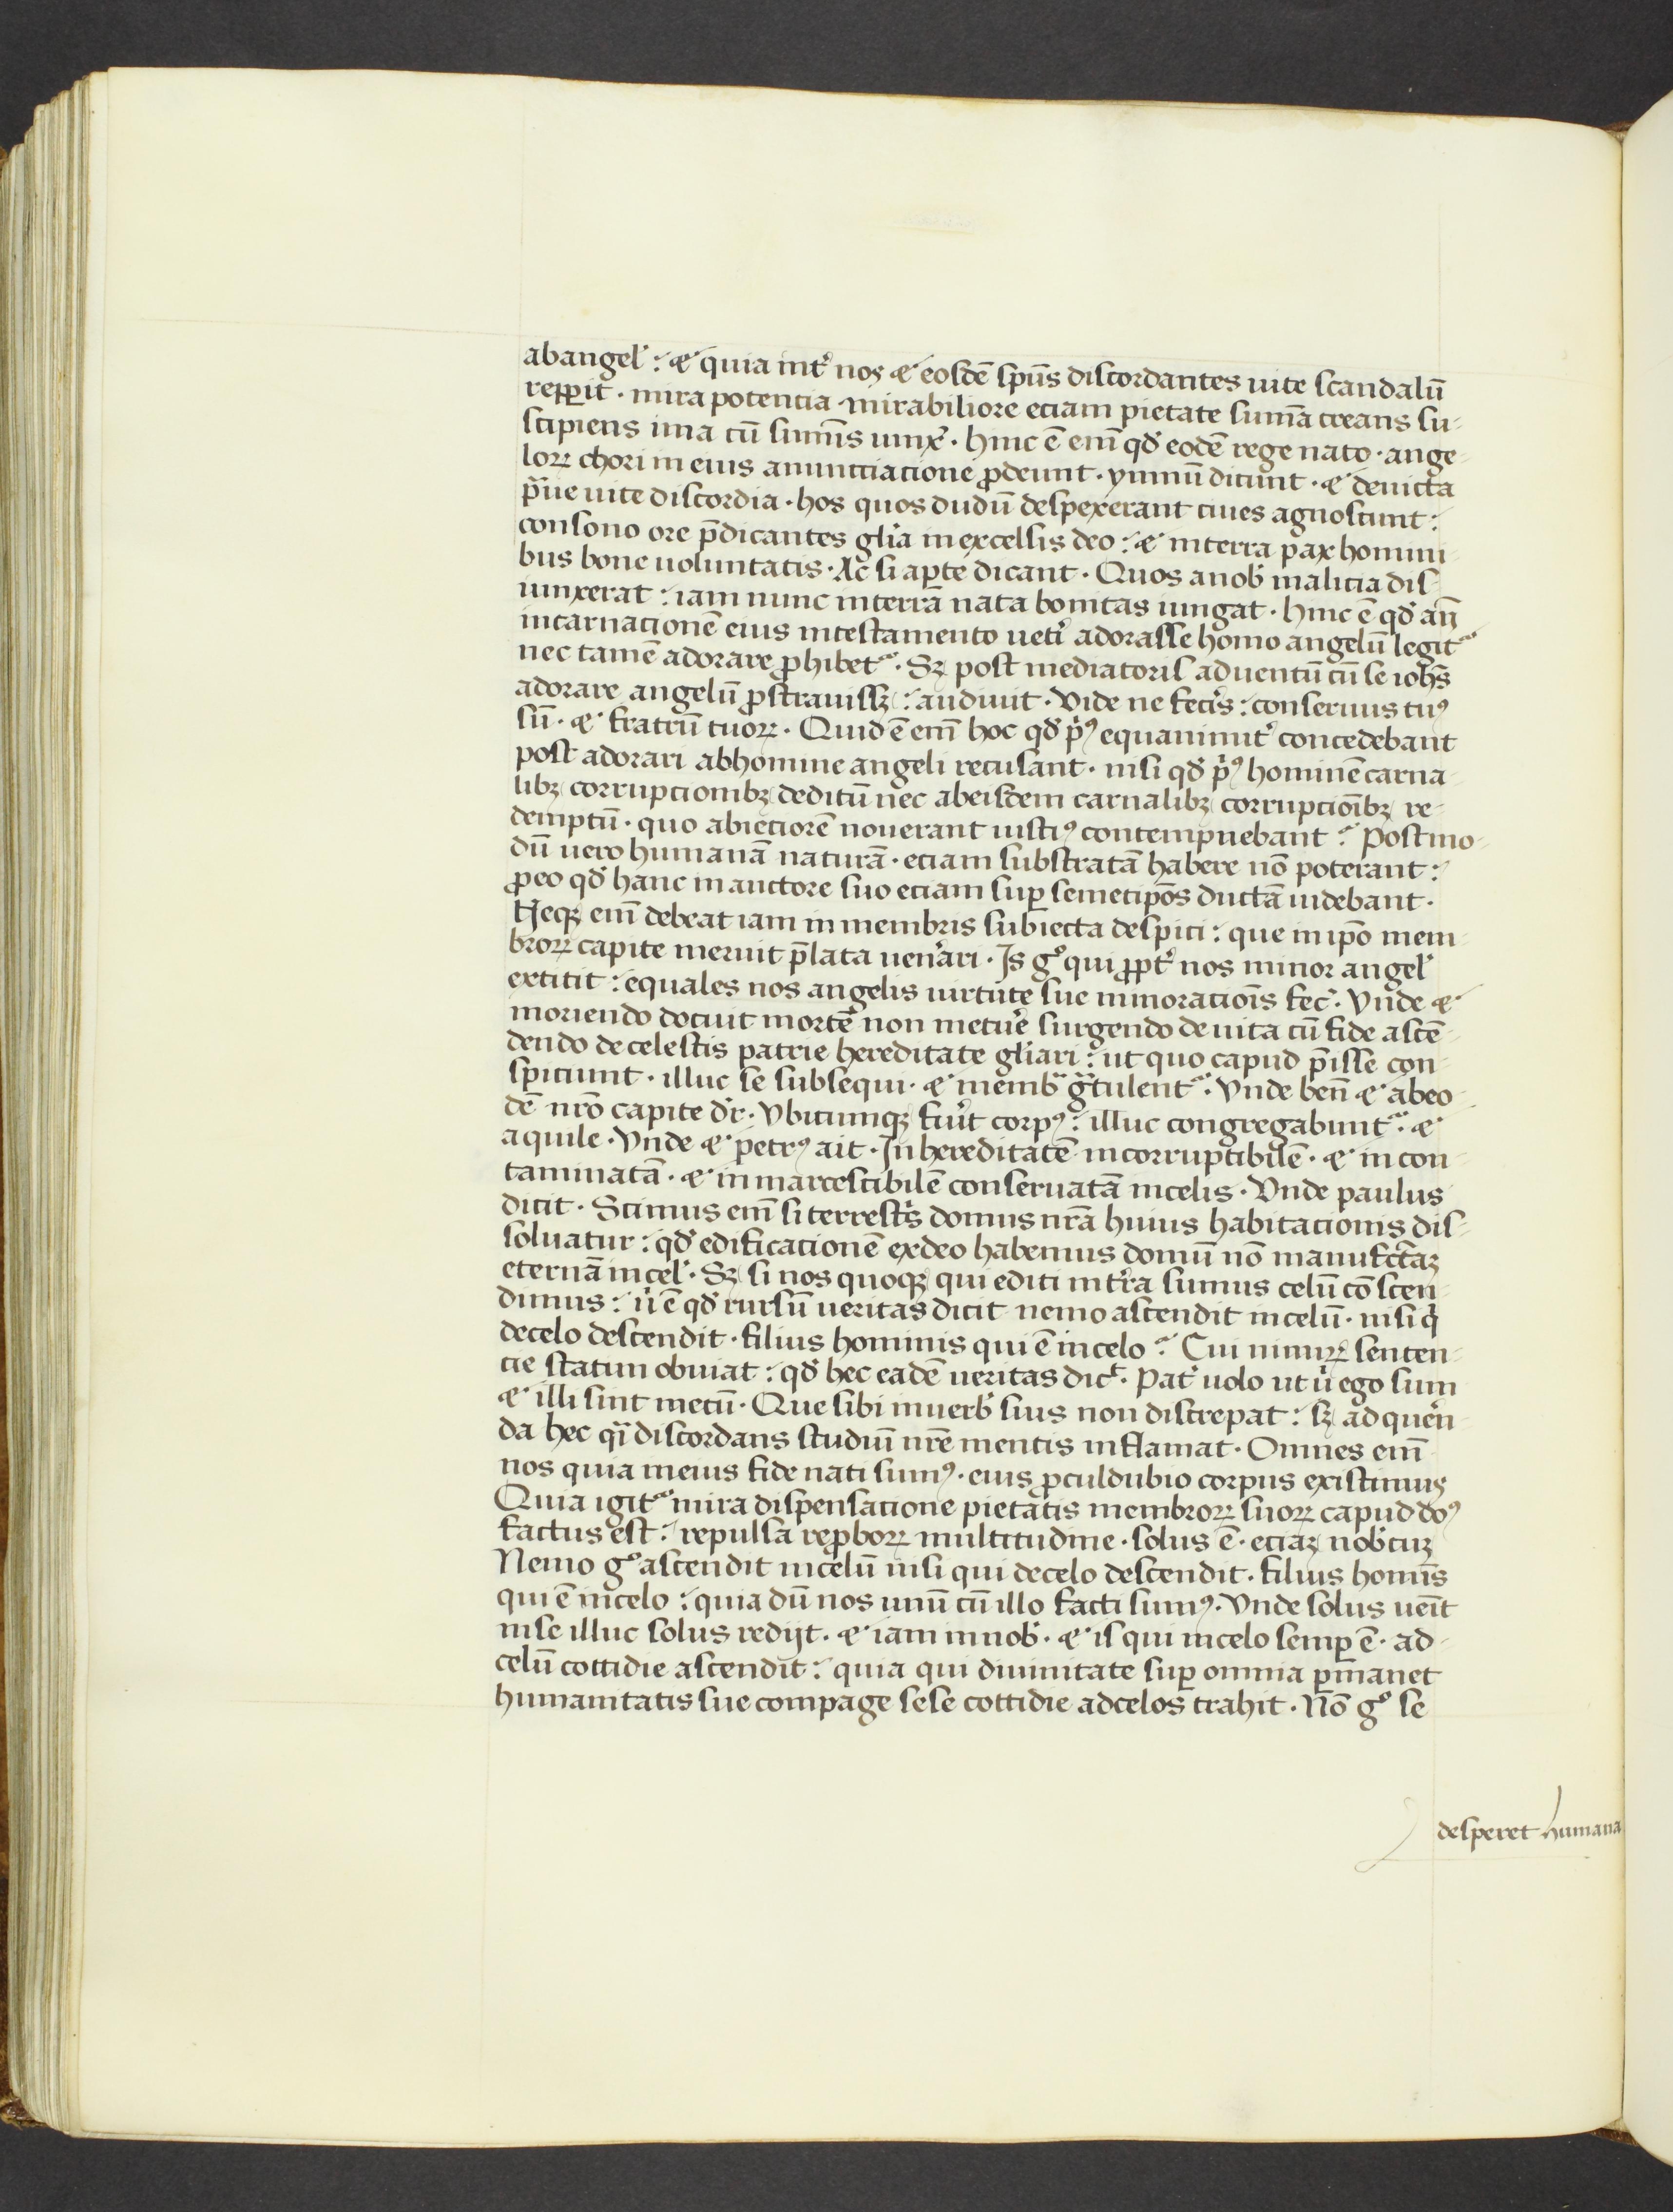 ab angel᷒ : ⁊ quia int᷒ nos ⁊ eosdē sp̄us discordantes uite scandalū
repꝑit · mira potencia mirabiliore eciam pietate sum̄a creans su-
scipiens ima cū sum̄is iunx̾ · hinc ē em̄ qđ eodē rege nato · ange-
loꝝ chori in eius anuncciacione ꝓdeunt · ymnū dicunt · ⁊ deuicta
p̄ue uite discordia · hos quos dudū despexerant ciues agnoscunt :
consono ore p̄dicantes gl̄ia in excelsis deo : ⁊ in terra pax homini-
bus bone uoluntatis · Ac si aꝑte dicant · Quos a nob̾ malicia dis-
iunxerat : iam nunc in terrā nata bonitas iungat · hinc ē qđ an̄
incarnacionē eius in testamento uet̾i adorasse homo angelū legit᷑
nec tamē adorare ꝓhibet᷑ · Sꝫ post mediatoris aduentū cū se ioh̄s
adorare angelū ꝓstrauissꝫ : audiuit · Vide ne fec̾is : conseruus tuꝰ
sū · ⁊ fratrū tuoꝝ · Quid ē em̄ hoc qđ p̾ꝰ equanimit̾ concedebant
post adorari ab homine angeli recusant · nisi qđ p̾ꝰ hominē carna-
libꝫ corrupcionibꝫ deditū nec ab eisdem carnalibꝫ corrupcōibꝫ re-
demptū · quo abiectiorē nouerant iustiꝰ contempnebant : Postmo-
dū uero humanā naturā · eciam substratā habere nō poterant :
ꝓ eo qđ hanc in auctore suo eciam suꝑ semetip̄os ductā uidebant ·
Neqꝫ em̄ debeat iam in membris subiecta despici : que in ip̄o mem-
broꝝ capite meruit p̄lata uen̾ari · Is gͦ qui ꝓpt̾ nos minor angel᷒
extitit : equales nos angelis uirtute sue minoraciōis fec̾ · Vnde ⁊
moriendo docuit mortē non metu̾e surgendo de uita cū fide ascē-
dendo de celestis patrie hereditate gl̄iari : ut quo capud p̄isse con-
spiciunt · illuc se subsequi · ⁊ membᵃ gᵃtulent᷑ · Vnde ben̄ ⁊ ab eo-
dē nr̄o capite dr̄ · Vbicumqꝫ fiu̾t corpꝰ : illuc congregabunt᷑ · ⁊
aquile · Vnde ⁊ petrꝰ ait · In hereditatē incorruptibilē · ⁊ incon-
taminatā · ⁊ inmarcescibilē conseruatā in celis · Vnde paulus
dicit · Scimus em̄ si terrestⁱs domus nr̄a huius habitacionis dis-
soluatur : qđ edificacionē ex deo habemus domū nō manufc̄taꝫ
eternā in cel᷒ · Sꝫ si nos quoqꝫ qui editi in t̾ra sumus celū cōscen-
dimus : uⁱ ē qđ rursū ueritas dicit nemo ascendit in celū · nisi qⁱ
de celo descendit · filius hominis qui ē in celo : Cui nimiꝝ senten-
cie statim obuiat : qđ hec eadē ueritas dicᵗ · Pat̾ uolo ut uⁱ ego sum
⁊ illi sint mecū · Que sibi in uerb̾ suis non discrepat : sꝫ ad quer̾n-
da hec qᵃi discordans studiū nr̄e mentis inflamat · Omnes em̄
nos quia in eius fide nati sumꝰ · eius ꝓculdubio corpus existimus
Quia igit᷑ mira dispensacione pietatis membroꝝ suoꝝ capud doꝰ
factus est : repulsa reꝓboꝝ multitudine · solus ē · eciaꝫ nob̾cuꝫ
Nemo gͦ ascendit in celū nisi qui de celo descendit · filius homīs
qui ē in celo : quia dū nos unū cū illo facti sumꝰ · Vnde solus uen̄it
in se illuc solus redijt · ⁊ iam in nob̾ · ⁊ is qui in celo semꝑ ē · ad
celū cottidie ascendit : quia qui diuinitate suꝑ omnia ꝑmanet
humanitatis sue compage sese cottidie ad celos trahit · Nō gͦ se
desperet humana